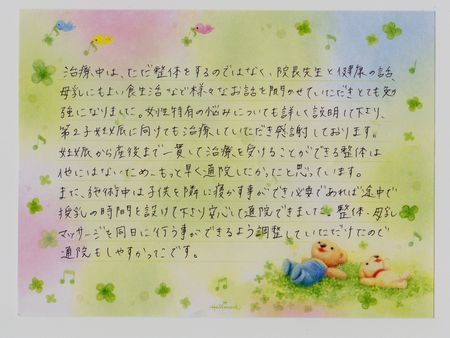 治療中は、ただ整体をするのではなく、院長先生と健康の話、
母乳にもよい食生活など様々なお話を聞かせていただきとても勉
強になりました。女性特有の悩みについても詳しく説明して下さり、
第2子妊娠に向けても治療していただき感謝しております。
妊娠から産後まで一貫して治療を受けることができる整体は
他にはないため、もっと早く通院したかったと思っています。
また、施術中は子供を隣に寝かす事ができ必要であれば途中で
授乳の時間を設けて下さり安心して通院できました。整体・母乳
マッサージを同日に行う事ができるよう調整していただけたので
通院もしやすかったです。
Hallmark